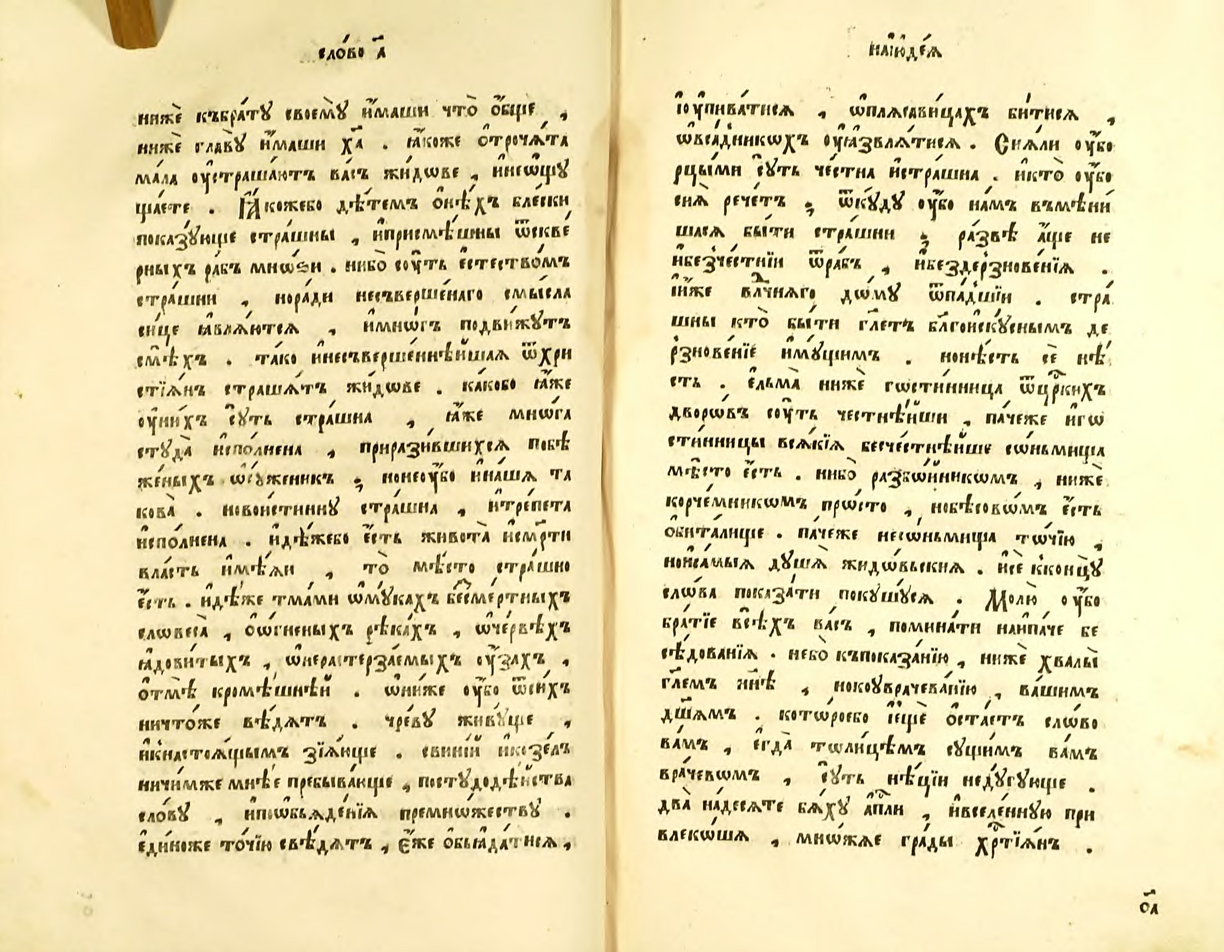 сло́во а҃
нижѐ къбра́тꙋ своемꙋ̀ и҆́маши что̀ о҆́бще ,
ниже главꙋ̀ и҆́маши ха҃ . ꙗ҆́коже ѻ҆троча́та
ма́ла оу҆страша́ютъ ва́съ жи́дове , и҆неѡ҆щꙋ
ща́ете . Ꙗ҆́кожебо дѣ́темъ ѻ҆нѣ́хъ бле́ски
пока́зꙋюще стра́шны , и҆присмѣ́шны ѿскве́
рныхъ ра́бъ мнѡ́зи . нибо̀ сꙋ́ть є҆стество́мъ
стра́шни , но́ради несъверше́наго смы́сла
си́це ꙗ҆вля́ются , и҆мнѡ́гъ подви́жꙋтъ
смѣ́хъ . та́ко и҆несъверше́ннѣйшая ѿхри
стїа́нъ страша́тъ жи́дѡве . ка́кобо ꙗ҆́же
оу҆ни́хъ сꙋ́ть стра́шна , ꙗ҆́же мнѡ́га
стꙋда̀ и҆спо́лнена , прирази́вшихся побѣ
же́ныхъ ѡ҆сꙋ́женикъ ; нонеоу҆́бо и҆на́ша та
кова̀ . новои́стиннꙋ стра́шна , и҆тре́пета
и҆спо́лнена . и҆дѣ́жебо є҆́сть живота̀ и҆сме́рти
вла́сть и҆мѣ́яи , то̀ мѣ́сто стра́шно
є҆́сть . и҆дѣ́же тма́ми ѡ҆мꙋ́кахъ бесме́ртныхъ
словеса̀ , ѻ҆ѡ҆гненыхъ рѣка́хъ , ѡ҆че́рвѣхъ
ꙗ҆дови́тыхъ , ѡ҆нерасте́рзаемыхъ оу҆́захъ ,
ѻ҆тмѣ̀ кромѣ́шнѣй . ѡ҆ни́же оу҆́бо ѿси́хъ
ничто́же вѣ́дятъ . чре́вꙋ живꙋ́ще ,
и҆кнастоѧ́щымъ зїѧ́юще . свині́й и҆козе́лъ
ничи́мже мнѣ́е пребыва́юще , постꙋдодѣ́йства
сло́вꙋ , и҆пѡѡбьяде́нїя премно́жествꙋ .
є҆ди́ноже то́чїю свѣ́дятъ , є҆́же ѻ҆бьꙗда́тися ,
наїꙋде́ѧ
і҆оупива́тися , ѡ҆пляса́вицахъ би́тися ,
ѡ҆вса́дникѡхъ оу҆ꙗзвля́тися . Сиѧ́ли оу҆́бо
рцы́ми сꙋ́ть че́стна и҆стра́шна . и҆кто̀ оу҆́бо
сиѧ̀ рече́тъ ; ѿкꙋ́дꙋ оу҆́бо на́мъ въмѣни́
шася бы́ти стра́шни ; ра́звѣ а҆́ще не
и҆безче́стнїи ѿра́бъ , и҆бездерзнове́нїя .
и҆́же вл҃чняго до́мꙋ ѿпа́дшїи . стра́
шны кто̀ бы́ти гл҃етъ бл҃гоискꙋ́снымъ де
рзнове́нїе и҆мꙋ́щимъ . ноне́сть сѐ нѣ́
сть . є҆льма̀ нижѐ гѡсти́нница ѿцр҃кихъ
дворѡ́въ сꙋ́ть честнѣ́йши , па́чеже и҆гѡ
сти́нницы вся́кїя бесче́стнѣйше сѡ́ньмища
мѣ́сто є҆́сть . нибо̀ разбо́йникѡмъ , нижѐ
корче́мникѡмъ про́сто , нобѣ́совѡмъ є҆́сть
ѻ҆бита́лище . па́чеже несѡ́ньмища то́чїю ,
нои҆са́мыя дꙋ́шя жидо́вьския . и҆сѐ кконцꙋ̀
сло́ва показа́ти покꙋшꙋ́ся . Молю̀ оу҆́бо
бра́тїе всѣ́хъ ва́съ , помина́ти наипа́че бе
сѣ́дованїя . небо̀ къпоказа́нїю , нижѐ хвалы̀
гл҃емъ нн҃ѣ , нокоуврачева́нїю , ва́шимъ
дш҃я́мъ . кото́роебо і҆ещѐ ѻ҆ста́етъ сло́во
ва́мъ , є҆гда̀ толи́цѣмъ сꙋ́щимъ ва́мъ
враче́вѡмъ , сꙋ́ть нѣ́цїи недꙋ́гꙋюще .
два̀ на́десяте бя́хꙋ а҆пл҃и , и҆вселе́ннꙋю при
влеко́шя , мно́жяе гра́ды хрⷭ҇тїя́нъ .
о҃а